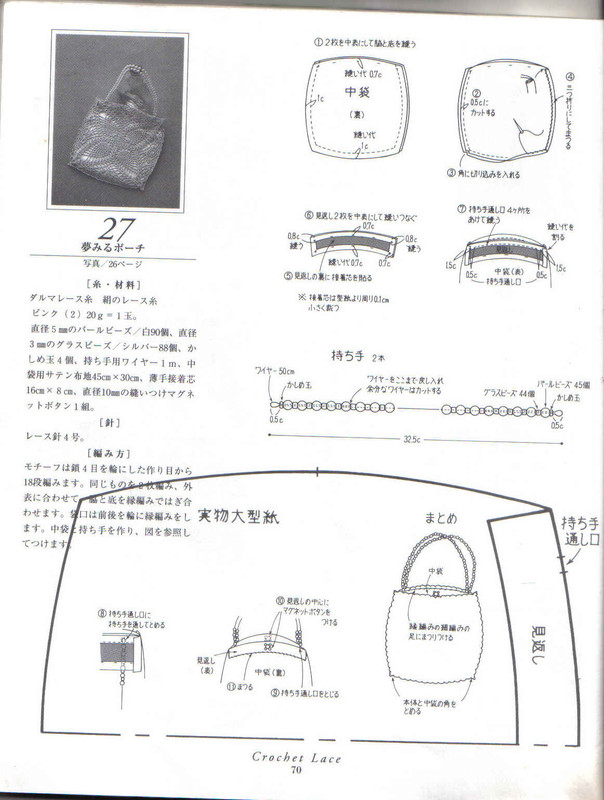 27
夢みるポーチ
写真／26ページ
［糸・材料］
ダルマレース糸　絹のレース糸
ピンク（2）20g＝1玉。
直径5㎜のパールビーズ／白90個、直径
3㎜のグラスビーズ／シルバー88個、か
しめ玉4個、持ち手用ワイヤー1m、中
袋用サテン布地45cm×30cm、薄手接着芯
16cm×8cm、直径10㎜の縫いつけマグネ
ットボタン1組。
［針］
レース針4号。
［編み方］
モチーフは鎖4目を輪にした作り目から
18段編みます。同じものを2枚編み、外
表に合わせて、脇と底を縁編みではぎ合
わせます。袋口は前後を輪に縁編みをし
ます。中袋と持ち手を作り、図を参照し
てつけます。
①2枚を中表にして脇と底を縫う
縫い代0.7c
1c
中袋
（裏）
縫い代
1c
②
0.5cに
カットする
③角にも切り込みを入れる
④
三つ折りにしてまつる
⑥見返し2枚を中表にして縫いつなぐ
0.7c
0.8c
縫う
0.8c
縫う
縫い代
0.7c
0.7c
⑤見返しの裏に接着芯を貼る
※接着芯は型紙より周り0.1cm
小さく裁つ
⑦持ち手通し口4ヶ所を
あけて縫う
縫い代を
割る
見返し
1.5c
0.5c
中袋（表）
持ち手通し口
0.5c
1.5c
持ち手　2本
ワイヤー50cm
かしめ玉
ワイヤーをここまで戻し入れ
余分なワイヤーはカットする
グラスビーズ44個
パールビーズ45個
かしめ玉
0.5c
0.5c
32.5c
実物大型紙
まとめ
持ち手
通し口
見返し
中袋
縁編みの細編みの
足にまつりつける
本体と中袋の角を
とめる
⑧持ち手通し口に
持ち手を通してとめる
⑩見返しの中心に
マグネットボタンを
つける
見返し
（表）
中袋（裏）
⑪まつる
⑨持ち手通し口をとじる
Crochet Lace
70